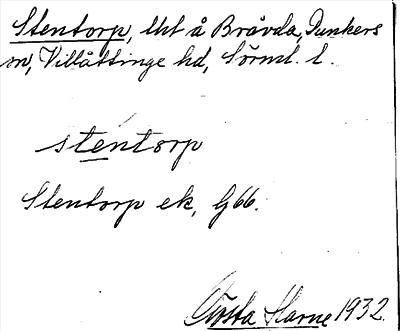 Stentorp, lht å Bråvda, Dunkers
sn, Villåttinge hd, Sörml. l.
stentorp
Stentorp ek, G66.
Gösta Harne 1932.